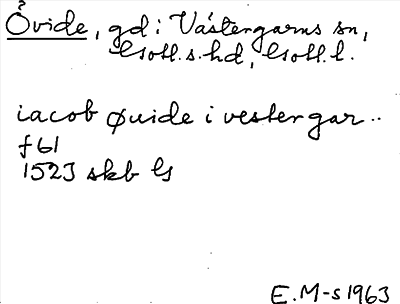 Övide, gd i Västergarns sn,
Gotl. s. hd, Gotl. l.
iacob øuide i vestergar..
f 61
1523 skb G
E. M-s 1963